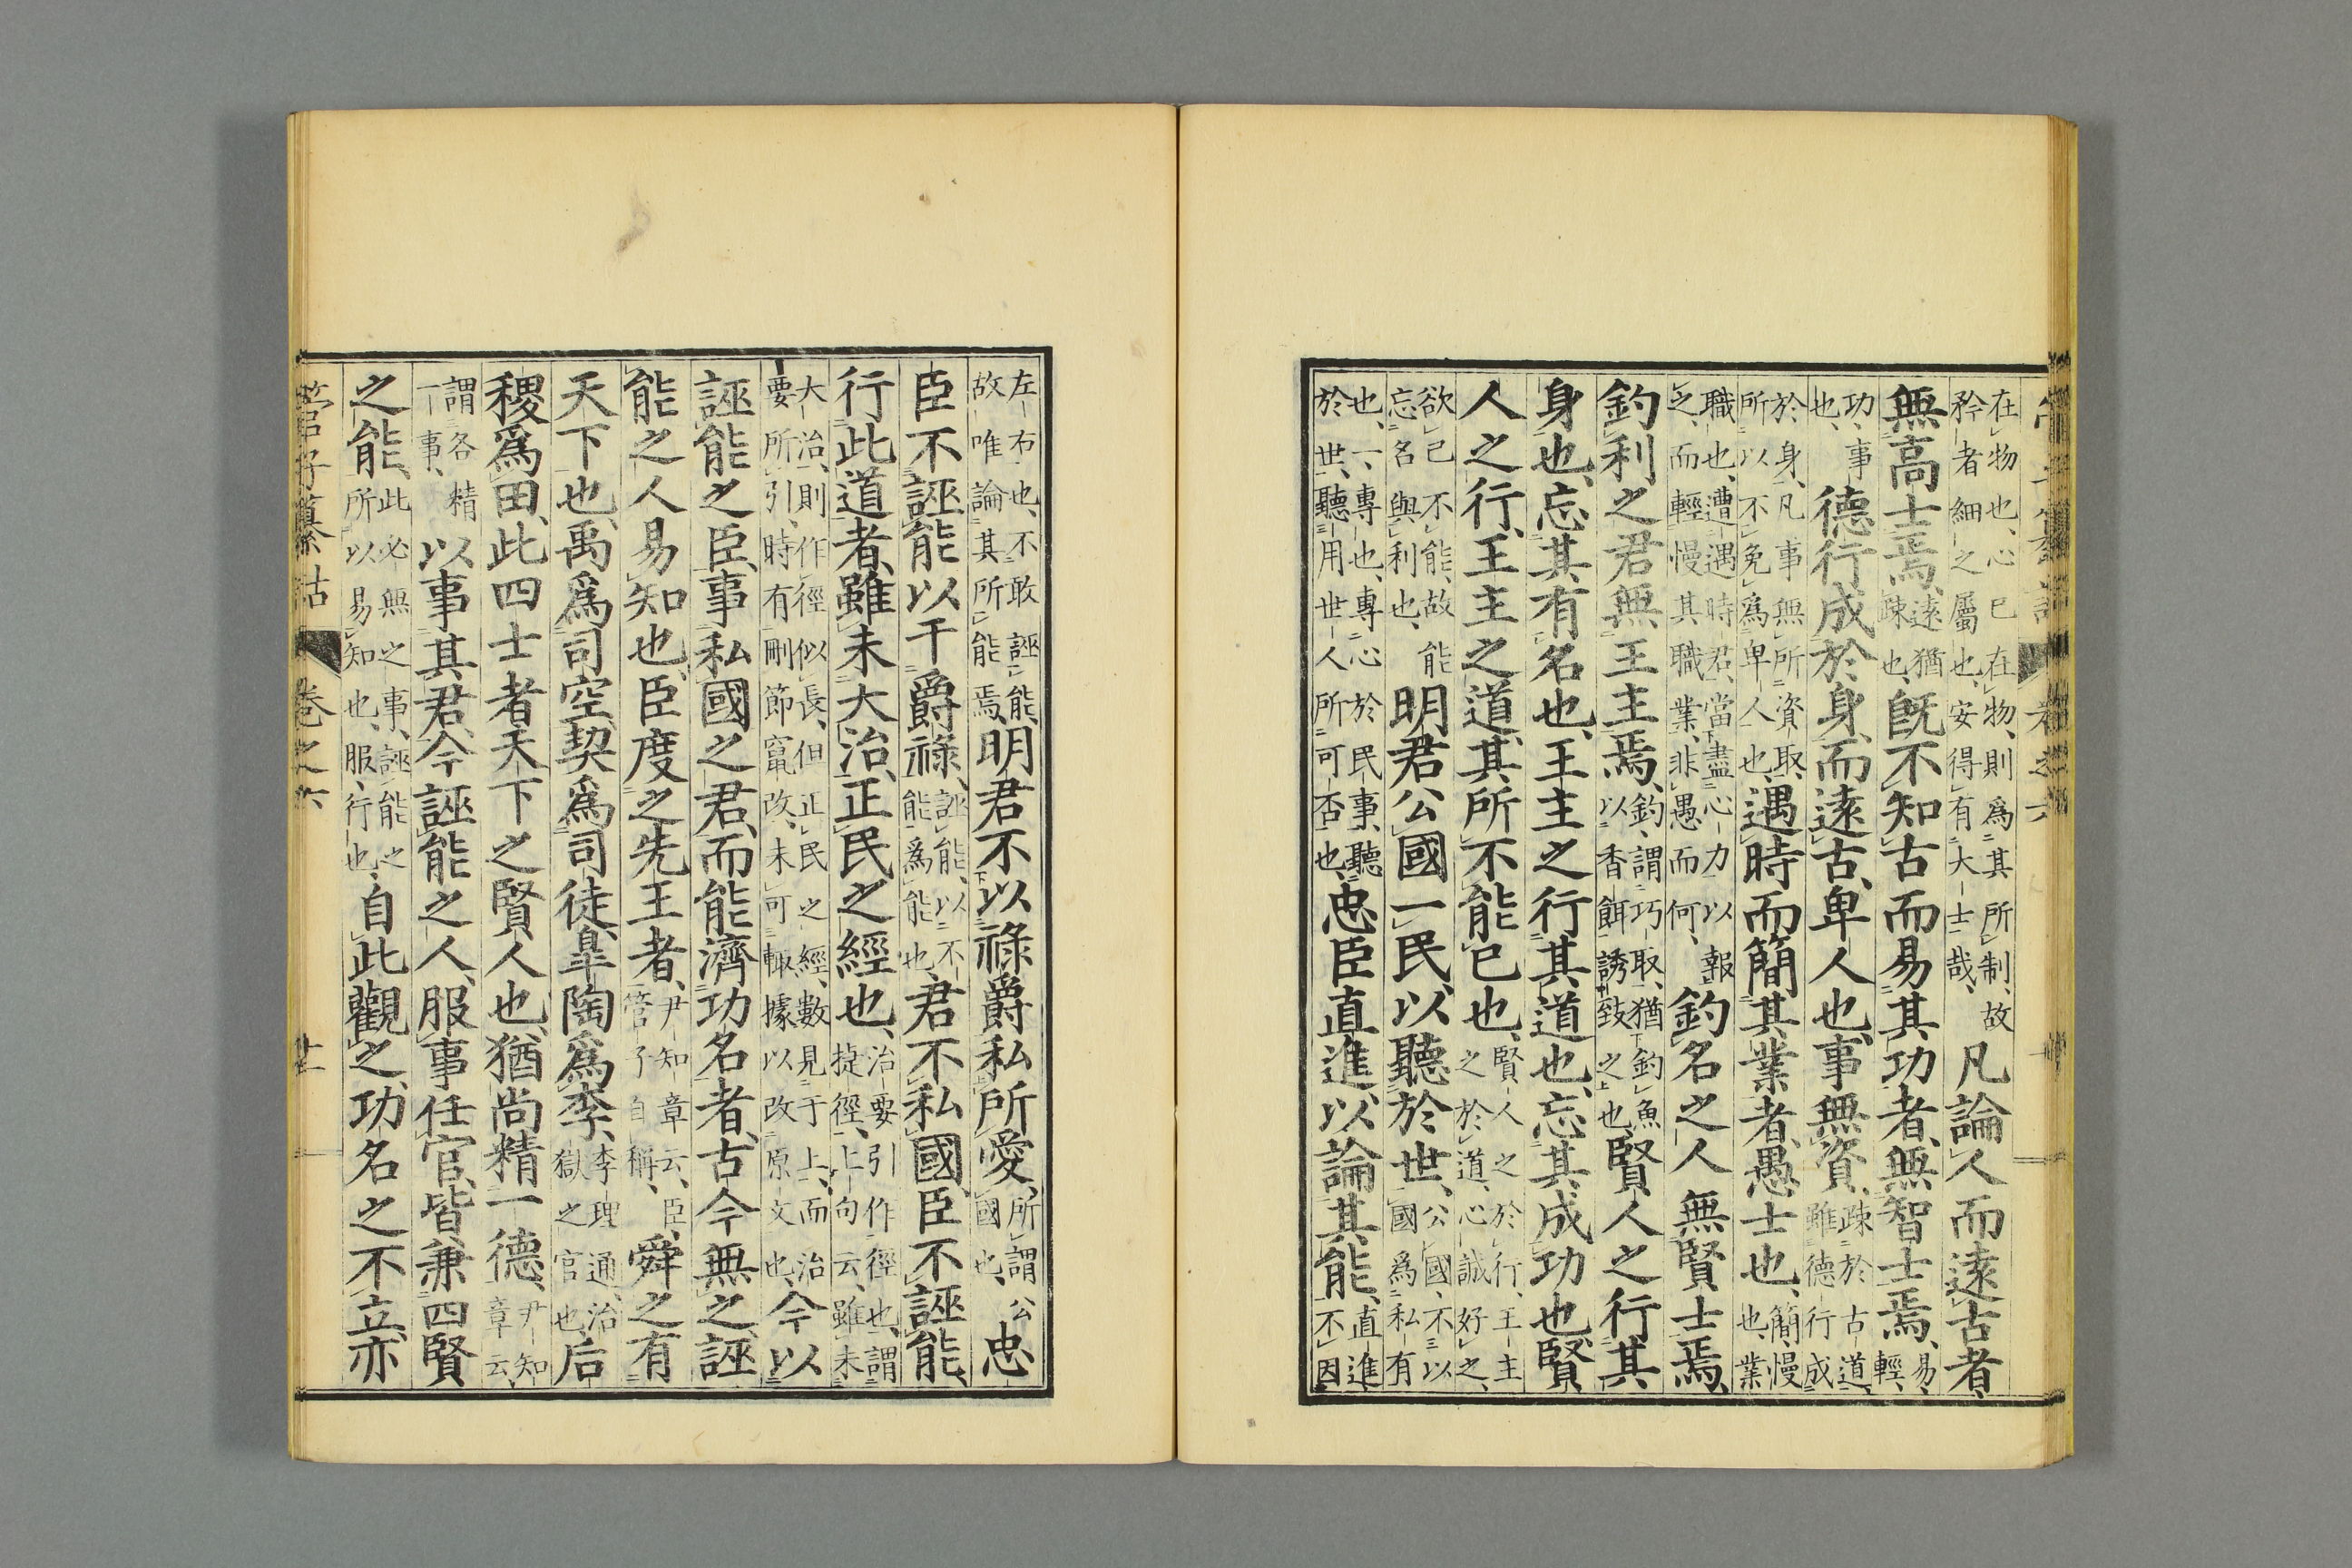 在物也、心已在物、則爲其所制、故
矜者細之屬也、安得有大士哉、凡論人而遠古者、
無高士焉、遠猶疎也、既不知古而易其功者、無智士焉、易、輕、
功、事也、德行成於身而遠古、卑人也、事無資、疎於古道、雖德行成
於身、凡事無所資取、所以不免爲卑人也、遇時而簡其業者、愚士也、簡、慢也、業
職也、遭遇時君、當盡心力以報之、而輕慢其職業、非愚而何、釣名之人、無賢士焉、
釣利之君、無王主焉、釣、謂巧取、猶釣魚以香餌誘致之也、賢人之行其
身也、忘其有名也、王主之行其道也、忘其成功也、賢
人之行、王主之道、其所不能已也、賢人之於行、王主之於道、心誠好之、
欲已不能、故能忘名與利也、明君公國一民、以聽於世、公國、不以國爲私有
也、一、專也、專心於民事、聽於世、聽用世人所可否也、忠臣直進、以論其能、直進不因
左右也、不敢誣能、故唯論其所能焉、明君不以祿爵私所愛、所謂公國也、忠
臣不誣能以干爵祿、誣能、以不能爲能也、君不私國、臣不誣能、
行此道者、雖未大治、正民之經也、治要引作徑也、謂捷徑、上句云、雖未
大治、則作徑似長、但正民之經、數見于上、而治要所引、時有刪節竄改、未可輒據以改原文也、今以
誣能之臣、事私國之君、而能濟功名者、古今無之、誣
能之人易知也、臣度之先王者、尹知章云、臣、管子自稱、舜之有
天下也、禹爲司空、契爲司徒、皐陶爲李、李理通、治獄之官也、后
稷爲田、此四士者、天下之賢人也、猶尚精一德、尹知章云、
謂各精一事、以事其君、今誣能之人、服事任官、皆兼四賢
之能、此必無之事、誣能之所以易知也、服、行也、自此觀之、功名之不立、亦
管子纂詁 卷之六 廿一